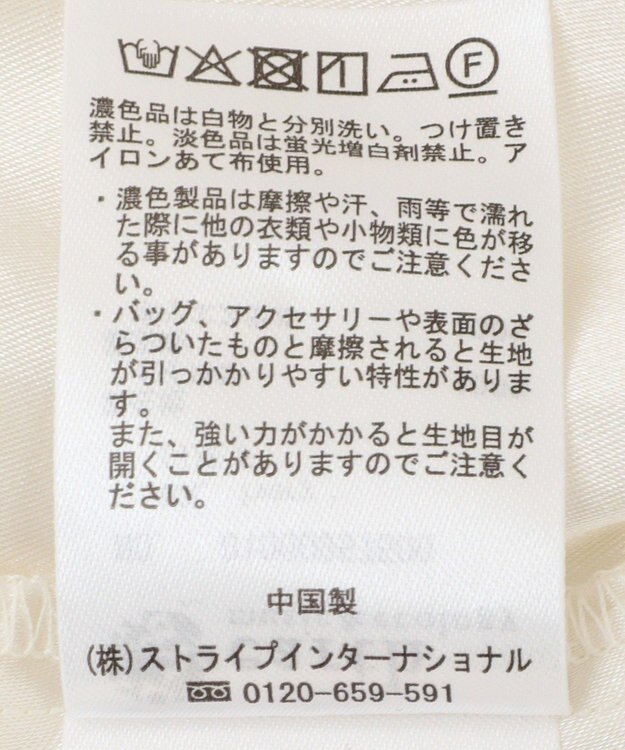 F
濃色品は白物と分別洗い。つけ置き
禁止。淡色品は蛍光増白剤禁止。ア
イロンあて布使用。
・濃色製品は摩擦や汗、雨等で濡れ
た際に他の衣類や小物類に色が移
る事がありますのでご注意くださ
い。
・バッグ、アクセサリーや表面のざ
らついたものと摩擦されると生地
が引っかかりやすい特性がありま
す。
また、強い力がかかると生地目が
開くことがありますのでご注意く
ださい。
中国製
(株)ストライプインターナショナル
0120-659-591